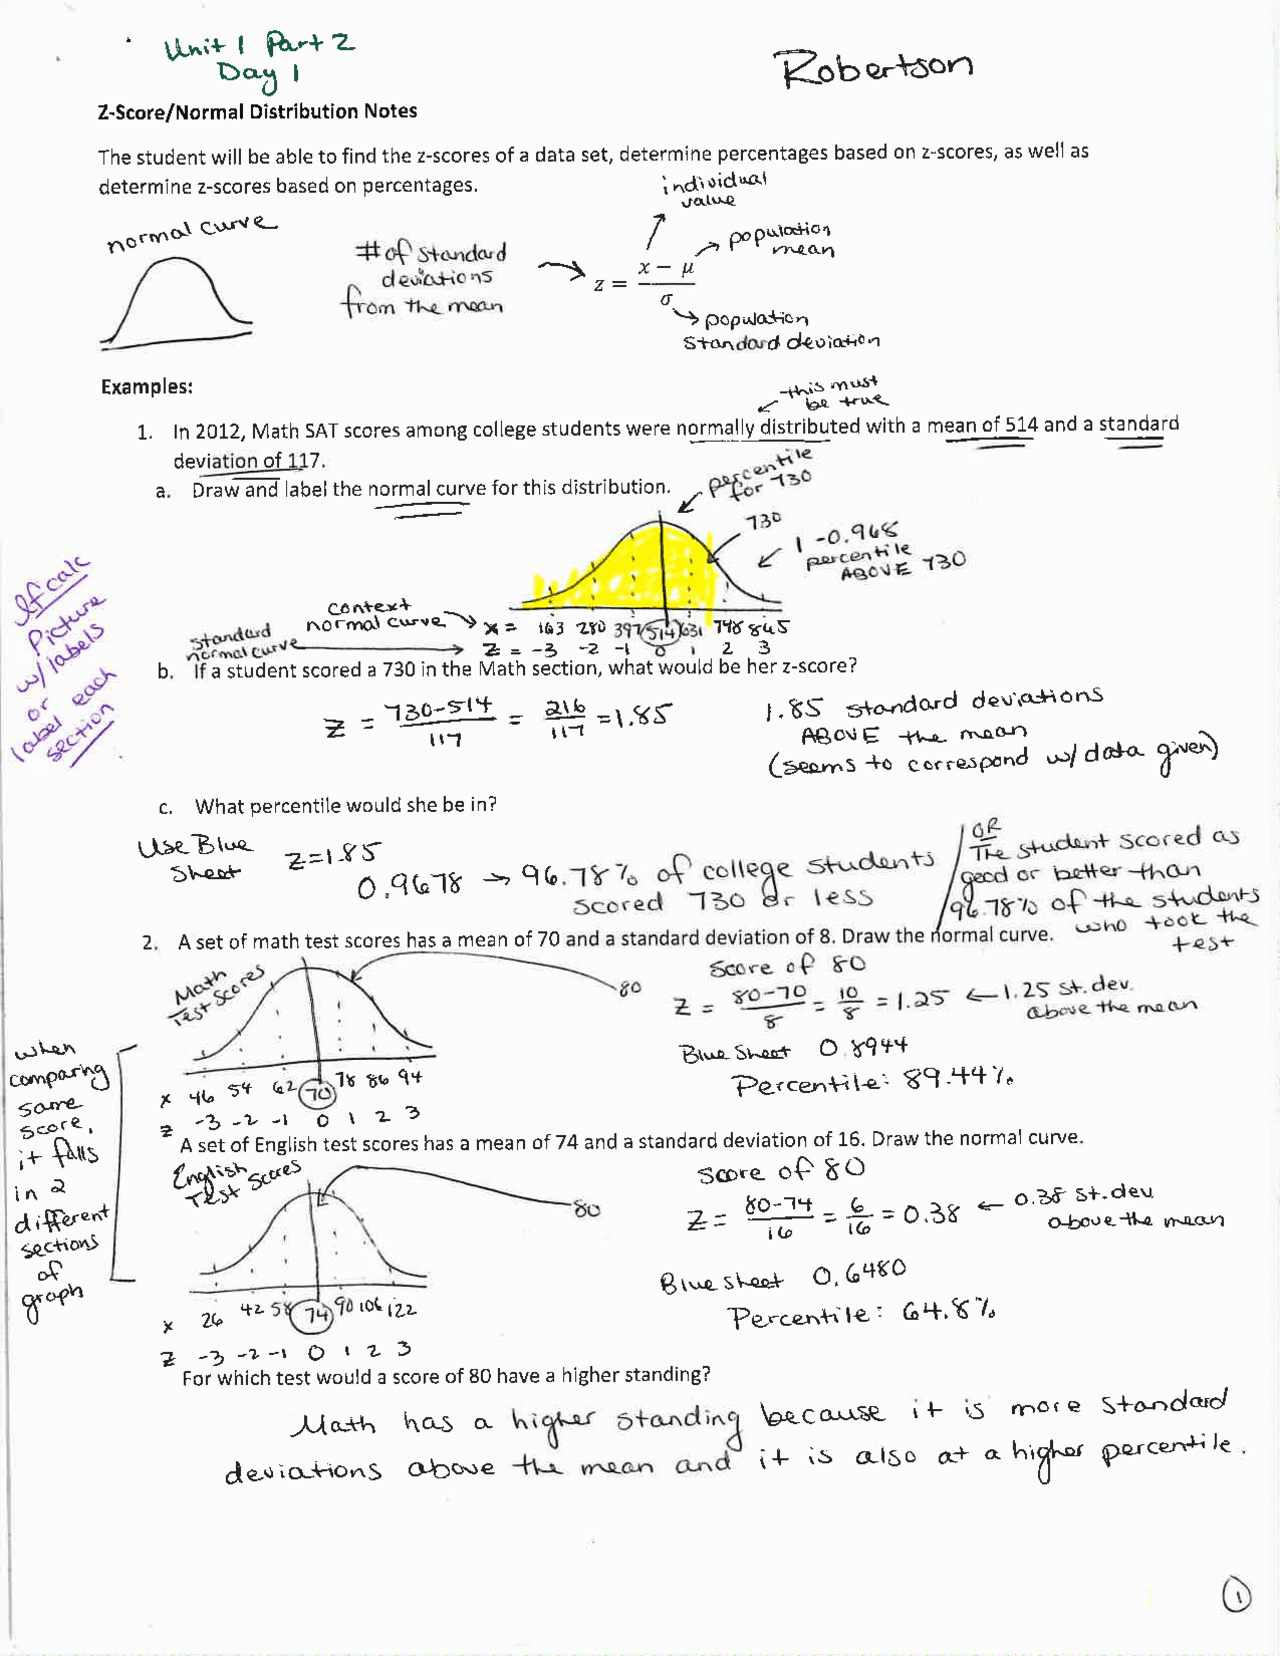 Unit 1 Part 2
Day 1
Robertson
Z-Score/Normal Distribution Notes
The student will be able to find the z-scores of a data set, determine percentages based on z-scores, as well as
determine z-scores based on percentages.
individual
value
normal curve
# of standard
deviations
from the mean
population
mean
z = x − μ / σ
population
standard deviation
Examples:
this must
be true
1. In 2012, Math SAT scores among college students were normally distributed with a mean of 514 and a standard
deviation of 117.
a. Draw and label the normal curve for this distribution.
percentile
for 730
730
1 - 0.968
percentile
ABOVE 730
If calc
Picture
w/ labels
or
label each
section
context
normal curve
x = 163 280 397 514 631 748 865
standard
normal curve
z = -3 -2 -1 0 1 2 3
b. If a student scored a 730 in the Math section, what would be her z-score?
z = 730-514 / 117 = 216 / 117 = 1.85
1.85 standard deviations
ABOVE the mean
(seems to correspond w/ data given)
c. What percentile would she be in?
Use Blue
Sheet
z=1.85
0.9678 → 96.78% of college students
scored 730 or less
OR
The student scored as
good or better than
96.78% of the students
who took the
test
2. A set of math test scores has a mean of 70 and a standard deviation of 8. Draw the normal curve.
Math
Test Scores
80
Score of 80
z = 80-70 / 8 = 10 / 8 = 1.25 ← 1.25 st. dev.
above the mean
Blue Sheet 0.8944
Percentile: 89.44%
x 46 54 62 70 78 86 94
z -3 -2 -1 0 1 2 3
when
comparing
same
score,
it falls
in 2
different
sections
of
graph
A set of English test scores has a mean of 74 and a standard deviation of 16. Draw the normal curve.
English
Test Scores
80
Score of 80
z = 80-74 / 16 = 6 / 16 = 0.38 ← 0.38 st. dev
above the mean
Blue sheet 0.6480
Percentile: 64.8%
x 26 42 58 74 90 106 122
z -3 -2 -1 0 1 2 3
For which test would a score of 80 have a higher standing?
Math has a higher standing because it is more standard
deviations above the mean and it is also at a higher percentile.
1